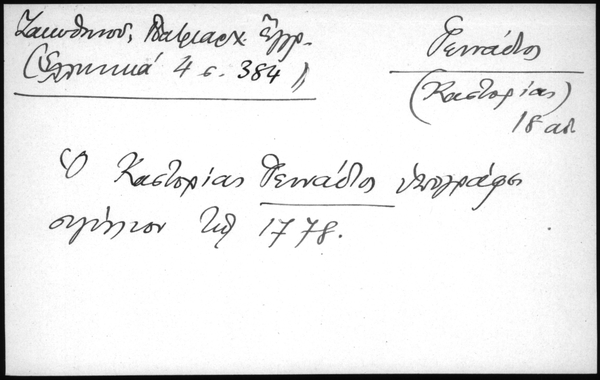 Ζακυθηνοῦ, Πατριαρχ. Ἔγγρ.
(Ἑλληνικά 4 σ. 384)
Γεννάδιος
(Καστορίας)
18 αι
Ὁ Καστορίας Γεννάδιος ὑπογράφει
σιγίλλιον τῷ 1778.